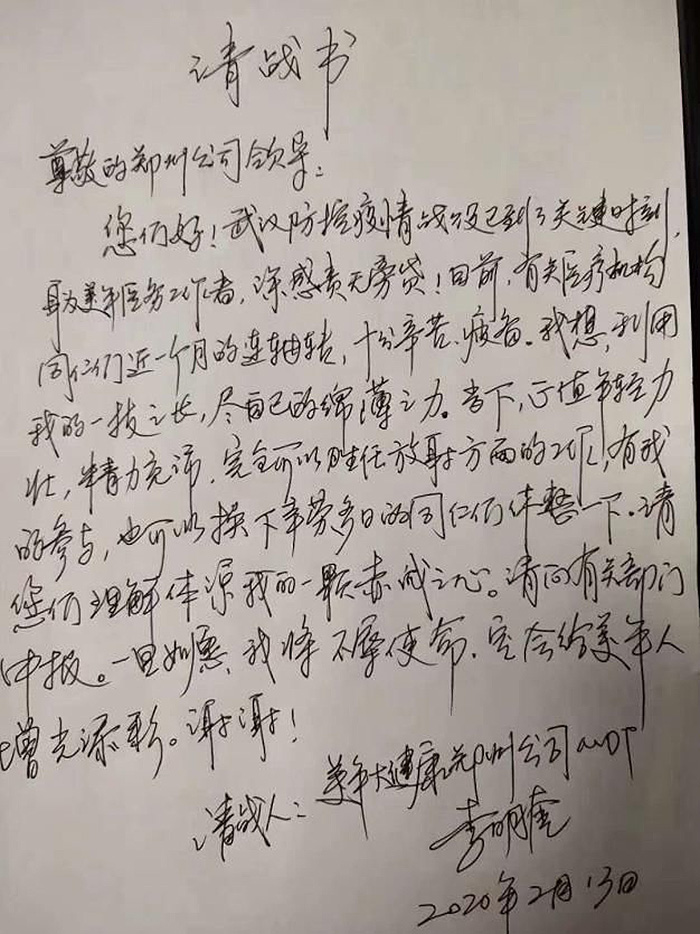 请战书
尊敬的郑州公司领导：
您们好！武汉防控疫情战役已到了关键时刻，
身为美年医务工作者，深感责无旁贷！目前，有关医疗机构
同仁们近一个月的连轴转，十分辛苦、疲备。我想，利用
我的一技之长，尽自己的绵薄之力。当下，正值年轻力
壮，精力充沛，完全可以胜任放射方面的工作，有我
的参与，也可以换下辛劳多日的同仁们休整一下。请
您们理解体谅我的一颗赤诚之心。请向有关部门
申报。一旦如愿，我将不辱使命，定会给美年人
增光添彩。谢谢！
请战人：美年大健康郑州公司
李明奎
2020年2月13日